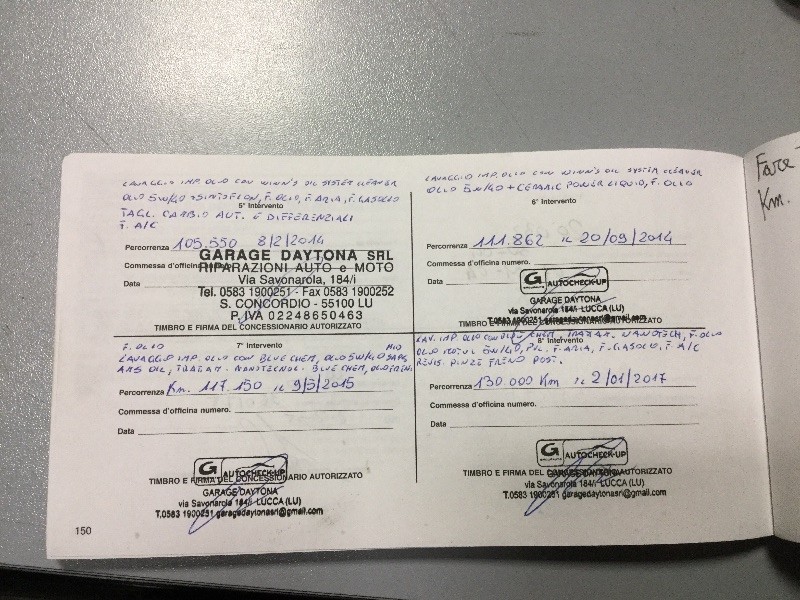 LAVAGGIO IMP. OLIO CON WINN'S OIL SYSTEM CLEANER
OLIO 5W/40 +SINTOFLON, F. OLIO, F. ARIA, F. GASOLIO
5° Intervento
TAGL. CAMBIO AUT. E DIFFERENZIALI
F. A/C
Percorrenza 105.550 8/2/2014
Commessa d'officina
Data
GARAGE DAYTONA SRL
RIPARAZIONI AUTO e MOTO
Via Savonarola, 184/i
Tel. 0583 1900251 - Fax 0583 1900252
S. CONCORDIO - 55100 LU
P. IVA 02248650463
TIMBRO E FIRMA DEL CONCESSIONARIO AUTORIZZATO
LAVAGGIO IMP. OLIO CON WINN'S OIL SYSTEM CLEANER
OLIO 5W/40 + CERAMIC POWER LIQUID, F. OLIO
6° Intervento
Percorrenza 111.862 IL 20/09/2014
Commessa d'officina numero.
Data
G AUTOCHECK-UP
GARAGE DAYTONA
via Savonarola 184/i LUCCA (LU)
T.0583 1900251 garagedaytonasrl@gmail.com
TIMBRO E FIRMA DEL CONCESSIONARIO AUTORIZZATO
F. OLIO 7° Intervento
LAVAGGIO IMP. OLIO CON BLUE CHEM, OLIO 5W/40
OIL, TRATAM. NANOTECNOL. BLUE CHEM, OLIO FRENI
Percorrenza Km. 117.150 IL 9/5/2015
Commessa d'officina numero.
Data
G AUTOCHECK-UP
TIMBRO E FIRMA DEL CONCESSIONARIO AUTORIZZATO
GARAGE DAYTONA
via Savonarola 184/i LUCCA (LU)
T.0583 1900251 garagedaytonasrl@gmail.com
LAV. IMP. OLIO CON BLUE CHEM, TRATAM. NANOTECH, F. OLIO
8° Intervento
OLIO MOTUL 5W/40, F. ARIA, F. GASOLIO, F. A/C
REVIS. PINZE FRENO POST.
Percorrenza 130.000 Km IL 2/01/2017
Commessa d'officina numero.
Data
G AUTOCHECK-UP
TIMBRO E FIRMA DEL CONCESSIONARIO AUTORIZZATO
GARAGE DAYTONA
via Savonarola 184/i LUCCA (LU)
T.0583 1900251 garagedaytonasrl@gmail.com
150
Fare
Km.